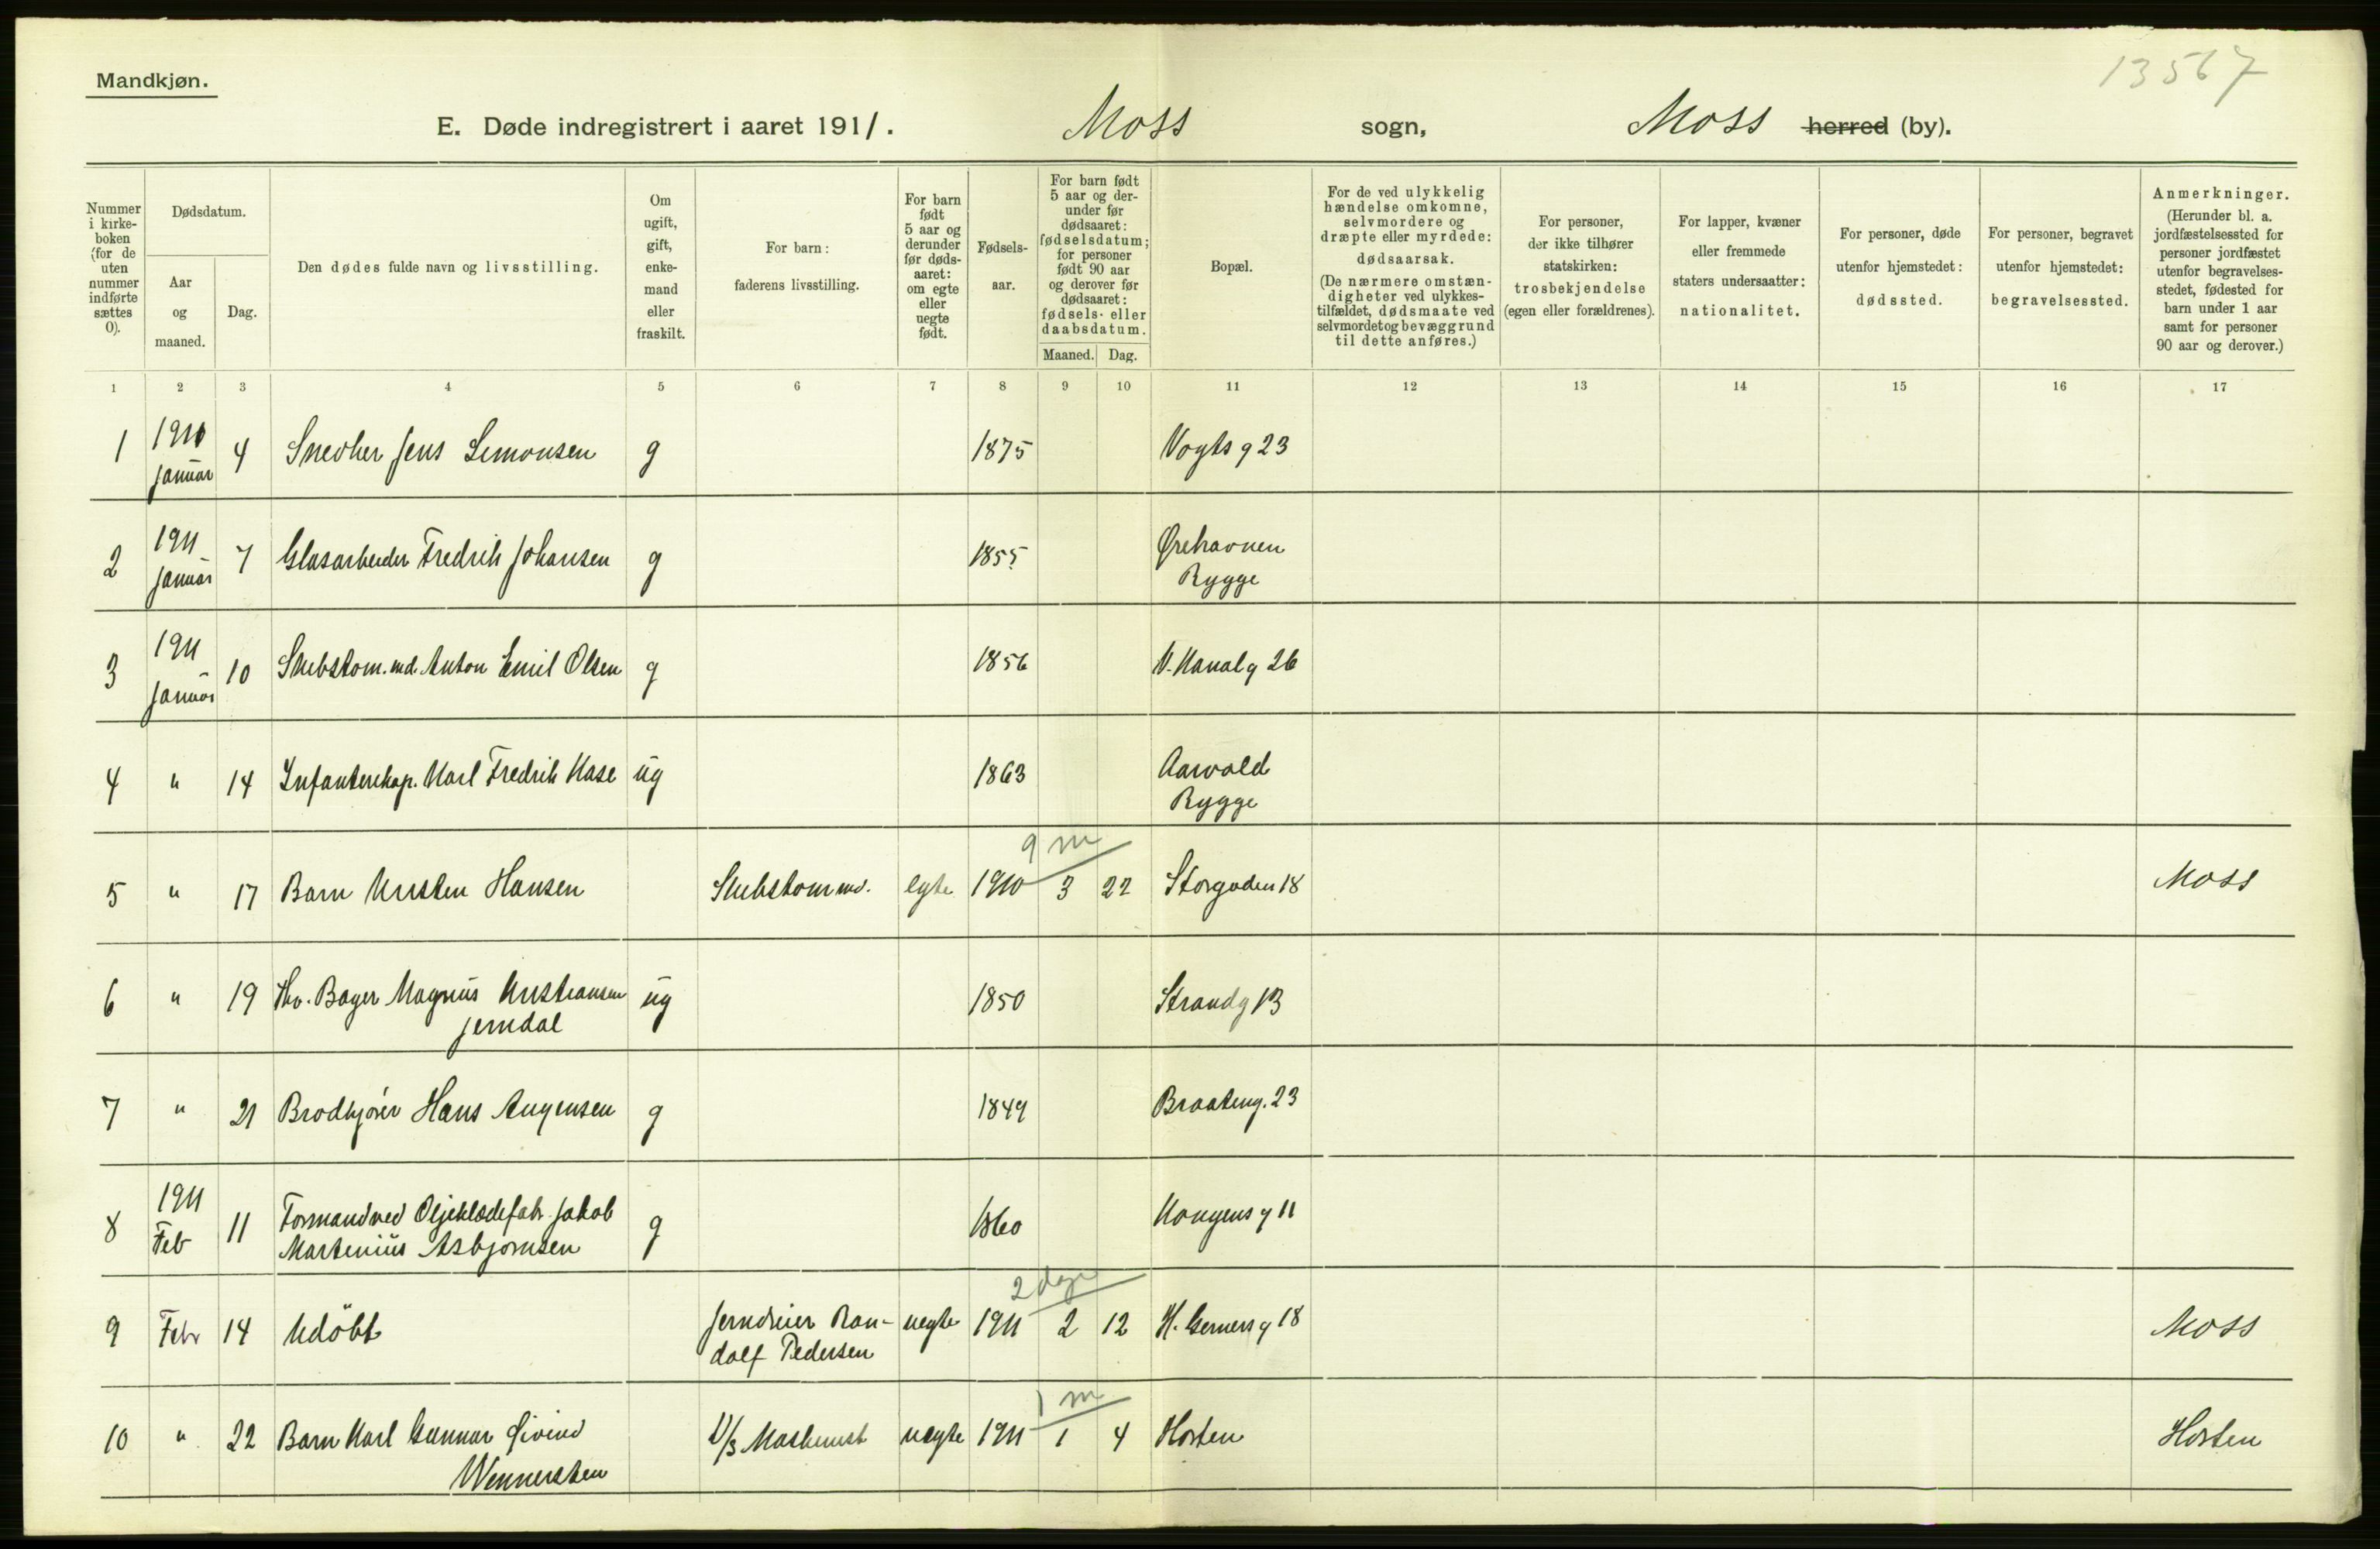 Mandkjøn.
13567
E. Døde indregistrert i aaret 1911. Moss sogn, Moss herred (by).
Nummer i kirke-boken (for de uten nummer indførte sættes 0).
Dødsdatum.
Aar og maaned.
Dag.
Den dødes fulde navn og livsstilling.
Om ugift, gift, enke-mand eller fraskilt.
For barn: faderens livsstilling.
For barn født 5 aar og derunder før døds-aaret: om egte eller uegte født.
Fødsels-aar.
For barn født 5 aar og der-under før dødsaaret: fødselsdatum; for personer født 90 aar og derover før dødsaaret: fødsels- eller daabsdatum.
Maaned. Dag.
Bopæl.
For de ved ulykkelig hændelse omkomne, selvmordere og dræpte eller myrdede: dødsaarsak. (De nærmere omstæn-digheter ved ulykkes-tilfældet, dødsmaate ved selvmordet og bevæggrund til dette anføres.)
For personer, der ikke tilhører statskirken: trosbekjendelse (egen eller forældrenes).
For lapper, kvæner eller fremmede staters undersaatter: nationalitet.
For personer, døde utenfor hjemstedet: dødssted.
For personer, begravet utenfor hjemstedet: begravelsessted.
Anmerkninger. (Herunder bl. a. jordfæstelsessted for personer jordfæstet utenfor begravelses-stedet, fødested for barn under 1 aar samt for personer 90 aar og derover.)
1 2 3 4 5 6 7 8 9 10 11 12 13 14 15 16 17
1 1911 januar 4 Snedker Jens Simonsen g 1875 Vogts g 23
2 1911 januar 7 Glasarbeider Fredrik Johansen g 1855 Ørehavnen Rygge
3 1911 januar 10 Skibstøm.md. Anton Emil Olsen g 1856 V. Kanalg 26
4 " 14 Infanterikap. Karl Fredrik Hase ug 1863 Aarvold Rygge
9 m
5 " 17 Barn Kristen Hansen Skibstømmd. egte 1910 3 22 Storgaden 18 Moss
6 " 19 Fhv. Bager Magnus Kristiansen Jerndal ug 1850 Strandg 13
7 " 21 Brodkjører Hans Augensen g 1849 Braateng. 23
8 1911 Feb 11 Formand ved Oljeklædefabr. Jakob Martenius Asbjørnsen g 1860 Kongens g 11
2 dage
9 Febr 14 Udöbt Jerndreier Ran-dolf Pedersen uegte 1911 2 12 H. Gerners g 18 Moss
1 m
10 " 22 Barn Karl Gunnar Eivind Wennersten D/S Maskinist uegte 1911 1 4 Horten Horten